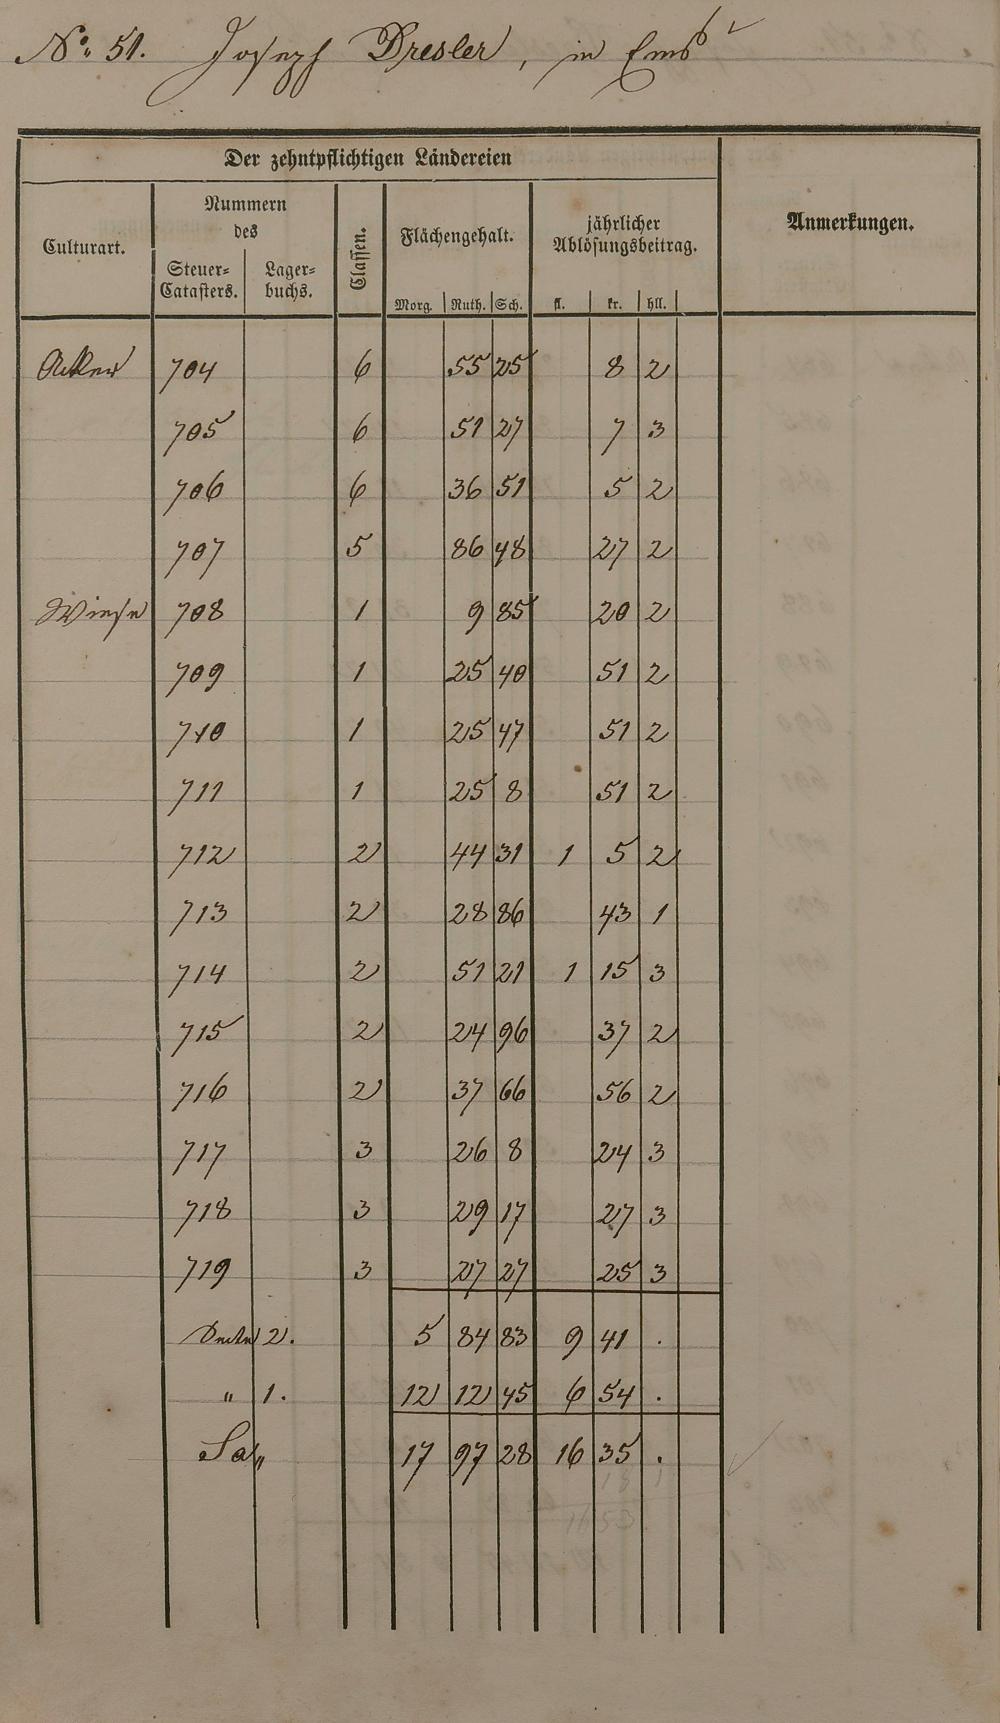 No. 51. Joseph Dresler, in Ems
Der zehntpflichtigen Ländereien
Anmerkungen.
Culturart.
Nummern des
Steuer-Catasters.
Lager-buchs.
Classen.
Flächengehalt.
jährlicher Ablösungsbeitrag.
Morg. Ruth. Sch. fl. kr. hll.
Acker 704 6 55 25 8 2
705 6 51 27 7 3
706 6 36 51 5 2
707 5 86 48 27 2
Wiese 708 1 9 85 20 2
709 1 25 40 51 2
710 1 25 47 51 2
711 1 25 8 51 2
712 2 44 31 1 5 2
713 2 28 86 43 1
714 2 51 21 1 15 3
715 2 24 96 37 2
716 2 37 66 56 2
717 3 26 8 24 3
718 3 29 17 27 3
719 3 27 27 25 3
2. 5 84 83 9 41 .
" 1. 12 12 45 6 54 .
Sa 17 97 28 16 35 .
18 1
16 53